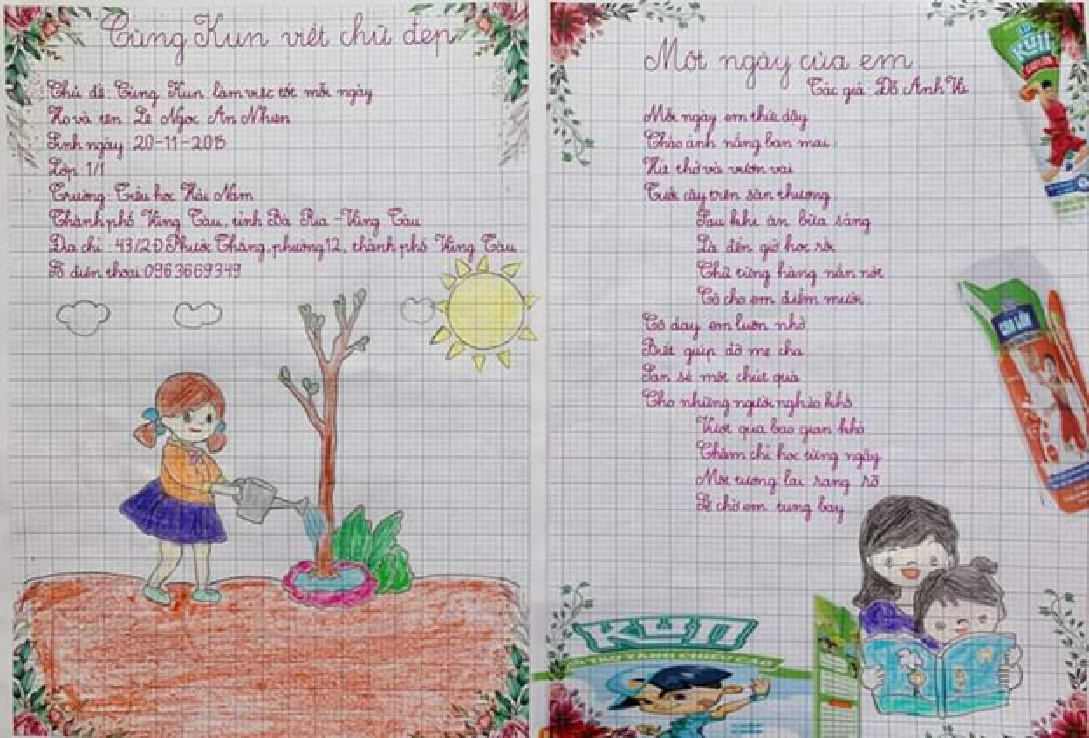 Cùng Kun viết chữ đẹp
Chủ đề: Cùng Kun làm việc tốt mỗi ngày
Họ và tên: Lê Ngọc An Nhiên
Sinh ngày: 20-11-2015
Lớp: 1/1
Trường: Tiểu học Hải Nam
Thành phố Vũng Tàu, tỉnh Bà Rịa - Vũng Tàu
Địa chỉ: 43/2Đ Phước Thắng, phường 12, thành phố Vũng Tàu
Số điện thoại: 0963669349
Một ngày của em
Tác giả: Đỗ Anh Vũ
Mỗi ngày em thức dậy
Chào ánh nắng ban mai
Hít thở và vươn vai
Tưới cây trên sân thượng
Sau khi ăn bữa sáng
Là đến giờ học rồi
Chữ từng hàng nắn nót
Cô cho em điểm mười
Cô dạy em luôn nhớ
Biết giúp đỡ mẹ cha
San sẻ một chút quà
Cho những người nghèo khó
Vượt qua bao gian khó
Chăm chỉ học từng ngày
Một tương lai rạng rỡ
Sẽ chờ em tung bay
KUN
KUN
CAO LỚN